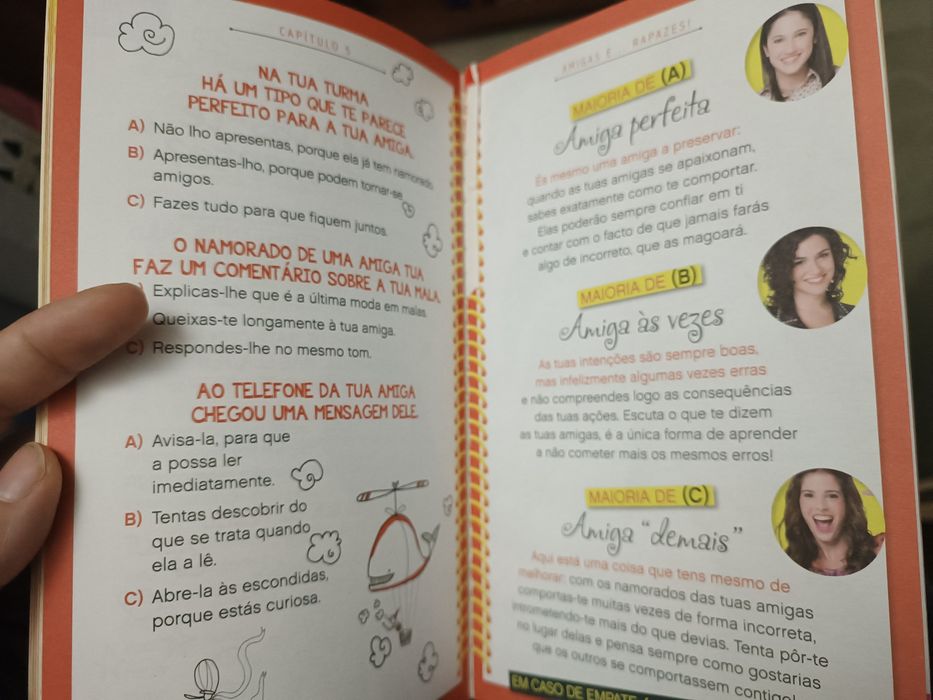 CAPÍTULO 5
NA TUA TURMA
HÁ UM TIPO QUE TE PARECE
PERFEITO PARA A TUA AMIGA.
A) Não lho apresentas, porque ela já tem namorado.
B) Apresentas-lho, porque podem tornar-se
amigos.
C) Fazes tudo para que fiquem juntos.
O NAMORADO DE UMA AMIGA TUA
FAZ UM COMENTÁRIO SOBRE A TUA MALA.
Explicas-lhe que é a última moda em malas.
Queixas-te longamente à tua amiga.
C) Respondes-lhe no mesmo tom.
AO TELEFONE DA TUA AMIGA
CHEGOU UMA MENSAGEM DELE.
A) Avisa-la, para que
a possa ler
imediatamente.
B) Tentas descobrir do
que se trata quando
ela a lê.
C) Abre-la às escondidas,
porque estás curiosa.
AMIGAS E... RAPAZES!
MAIORIA DE (A)
Amiga perfeita
És mesmo uma amiga a preservar:
quando as tuas amigas se apaixonam,
sabes exatamente como te comportar.
Elas poderão sempre confiar em ti
e contar com o facto de que jamais farás
algo de incorreto, que as magoará.
MAIORIA DE (B)
Amiga às vezes
As tuas intenções são sempre boas,
mas infelizmente algumas vezes erras
e não compreendes logo as consequências
das tuas ações. Escuta o que te dizem
as tuas amigas, é a única forma de aprender
a não cometer mais os mesmos erros!
MAIORIA DE (C)
Amiga "demais"
Aqui esta uma coisa que tens mesmo de
melhorar: com os namorados das tuas amigas
comportas-te muitas vezes de forma incorreta,
intrometendo-te mais do que devias. Tenta pôr-te
no lugar delas e pensa sempre como gostarias
que os outros se comportassem contigo!
EM CASO DE EMPATE